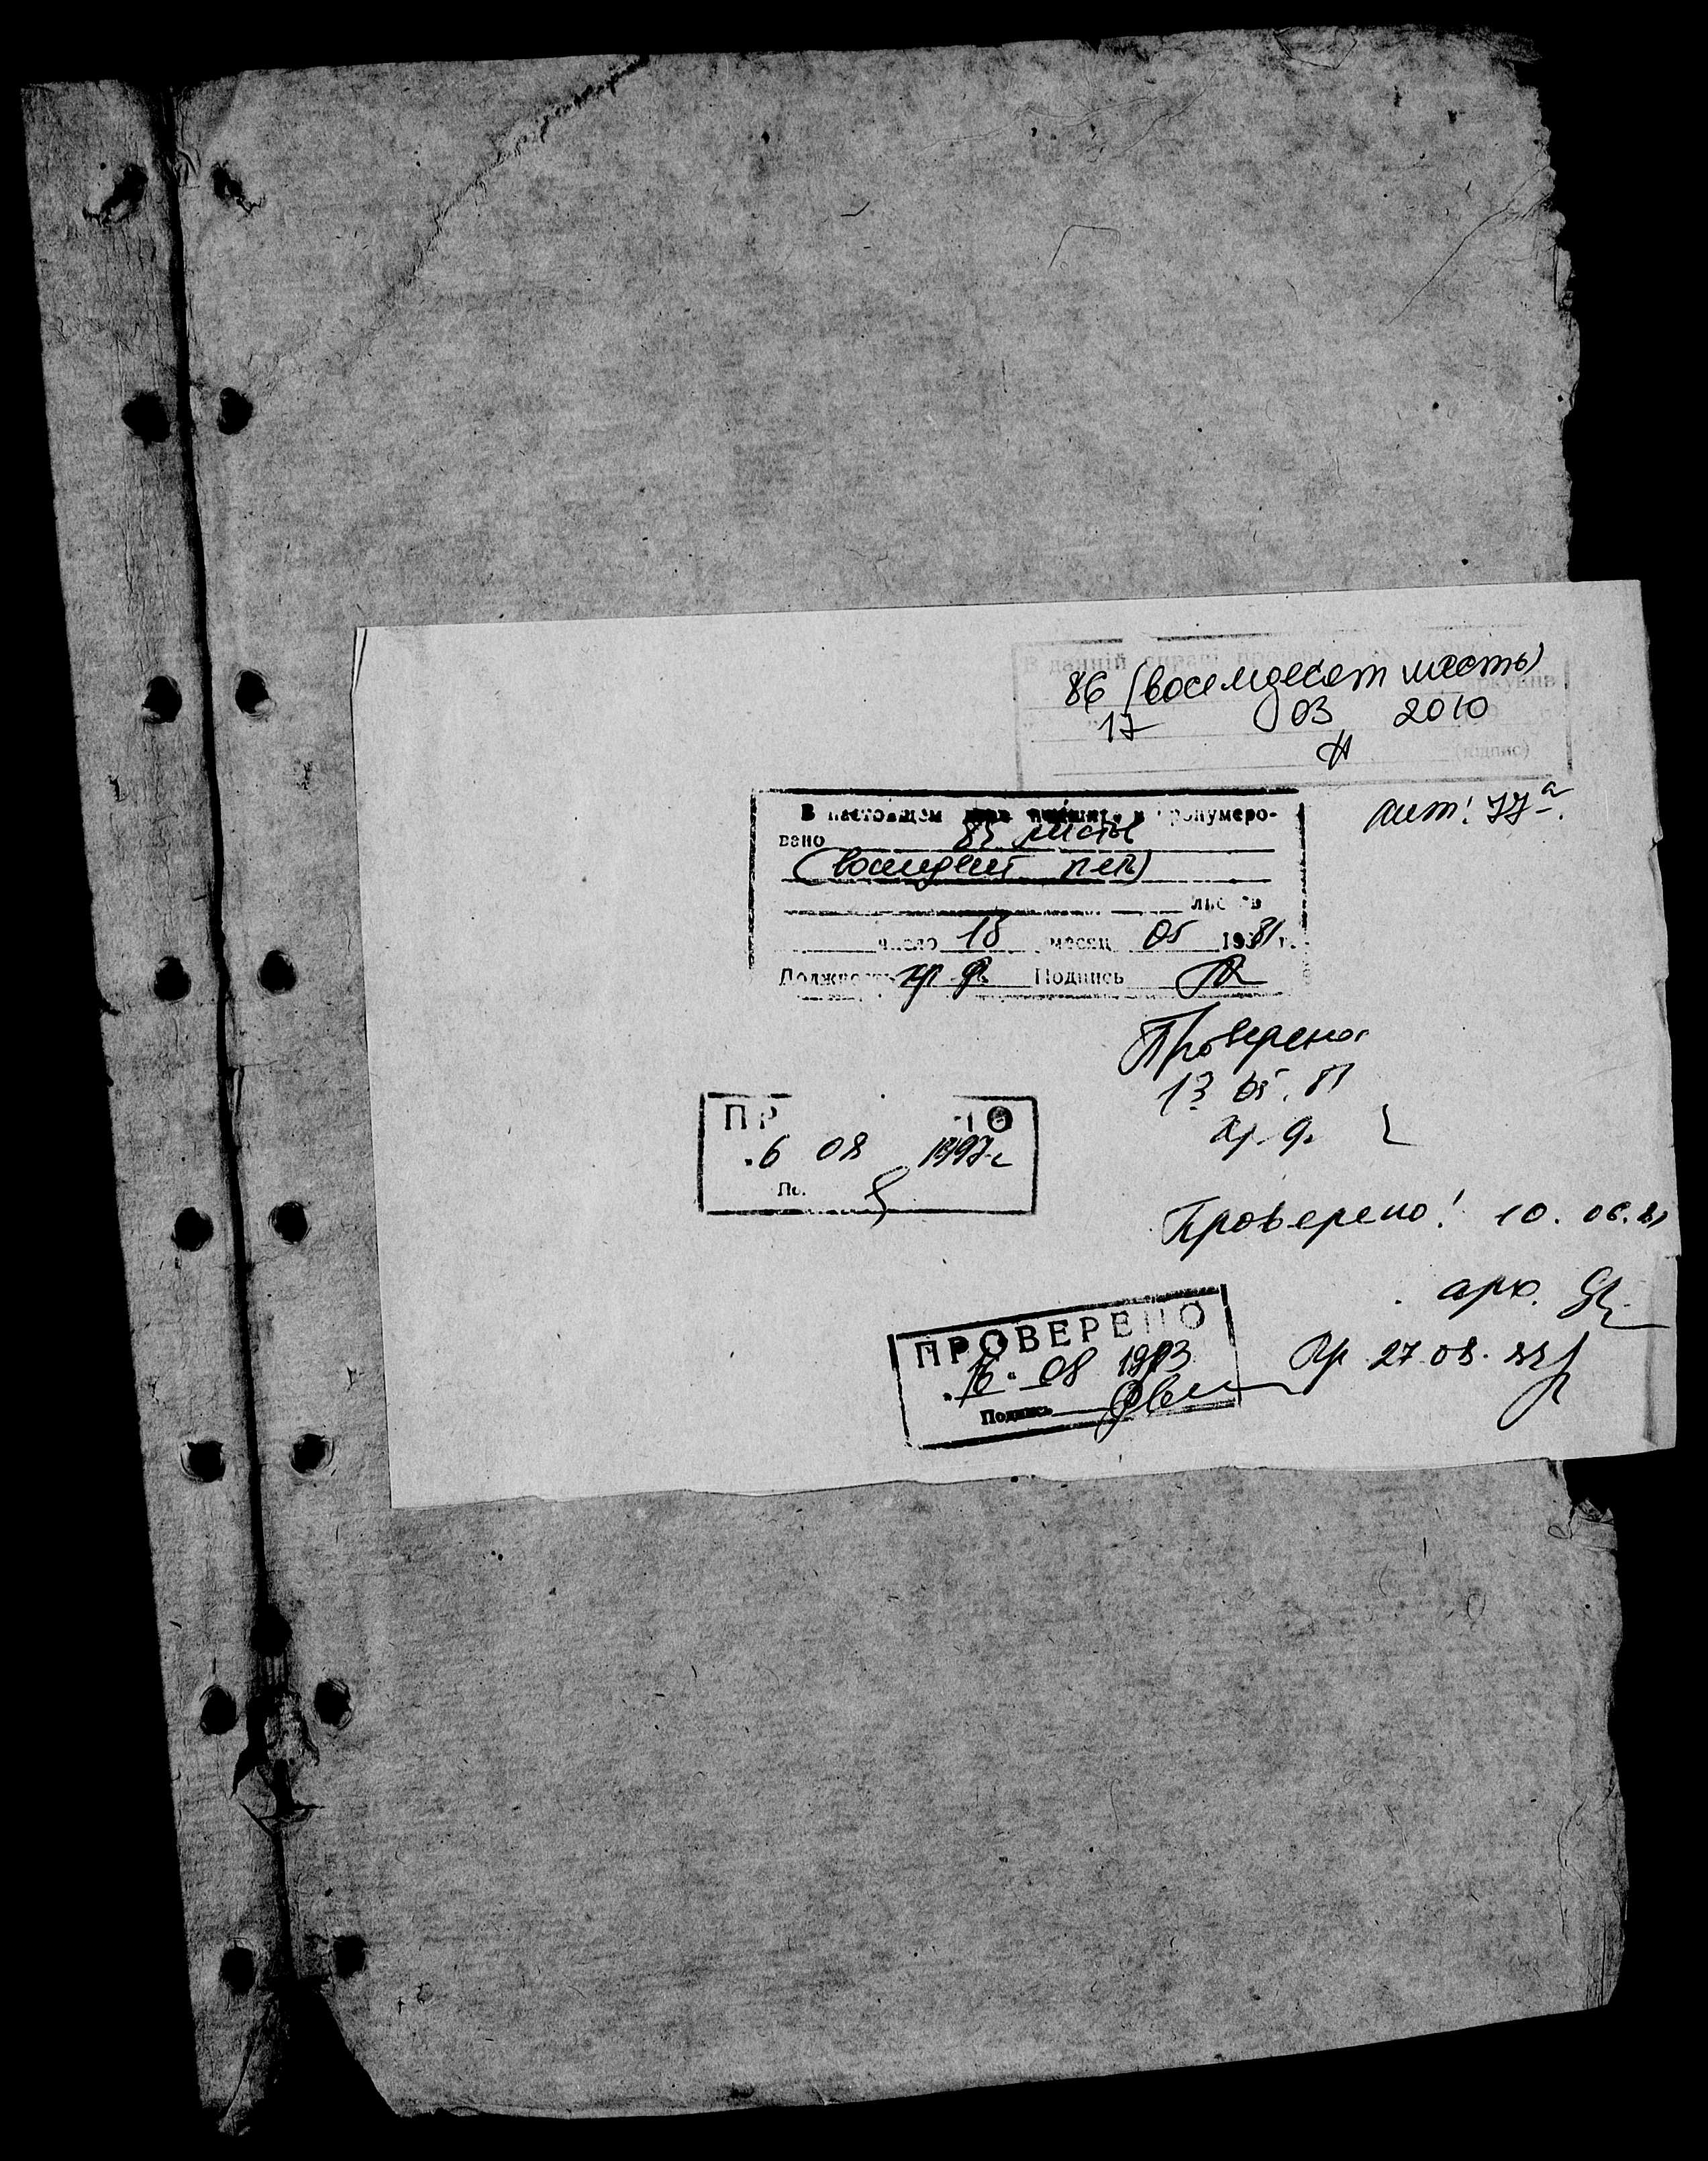 В данній справі
86 (восемдесят шесть)
17 03 2010
(підпис)
лит! 77а.
В настоящем деле подшито и пронумеро-
вано 85 листов
(восемдесят пять)
листов
число 18 месяц 05 1981 г.
Должность хр. ф. Подпись
Проверено
13 05. 81
хр. ф.
ПР НО
6 08 1997 г
По.
Проверено! 10. 06. 81
арх.
ПРОВЕРЕНО
16. 08 1993
Подпись
Пр 27.08.